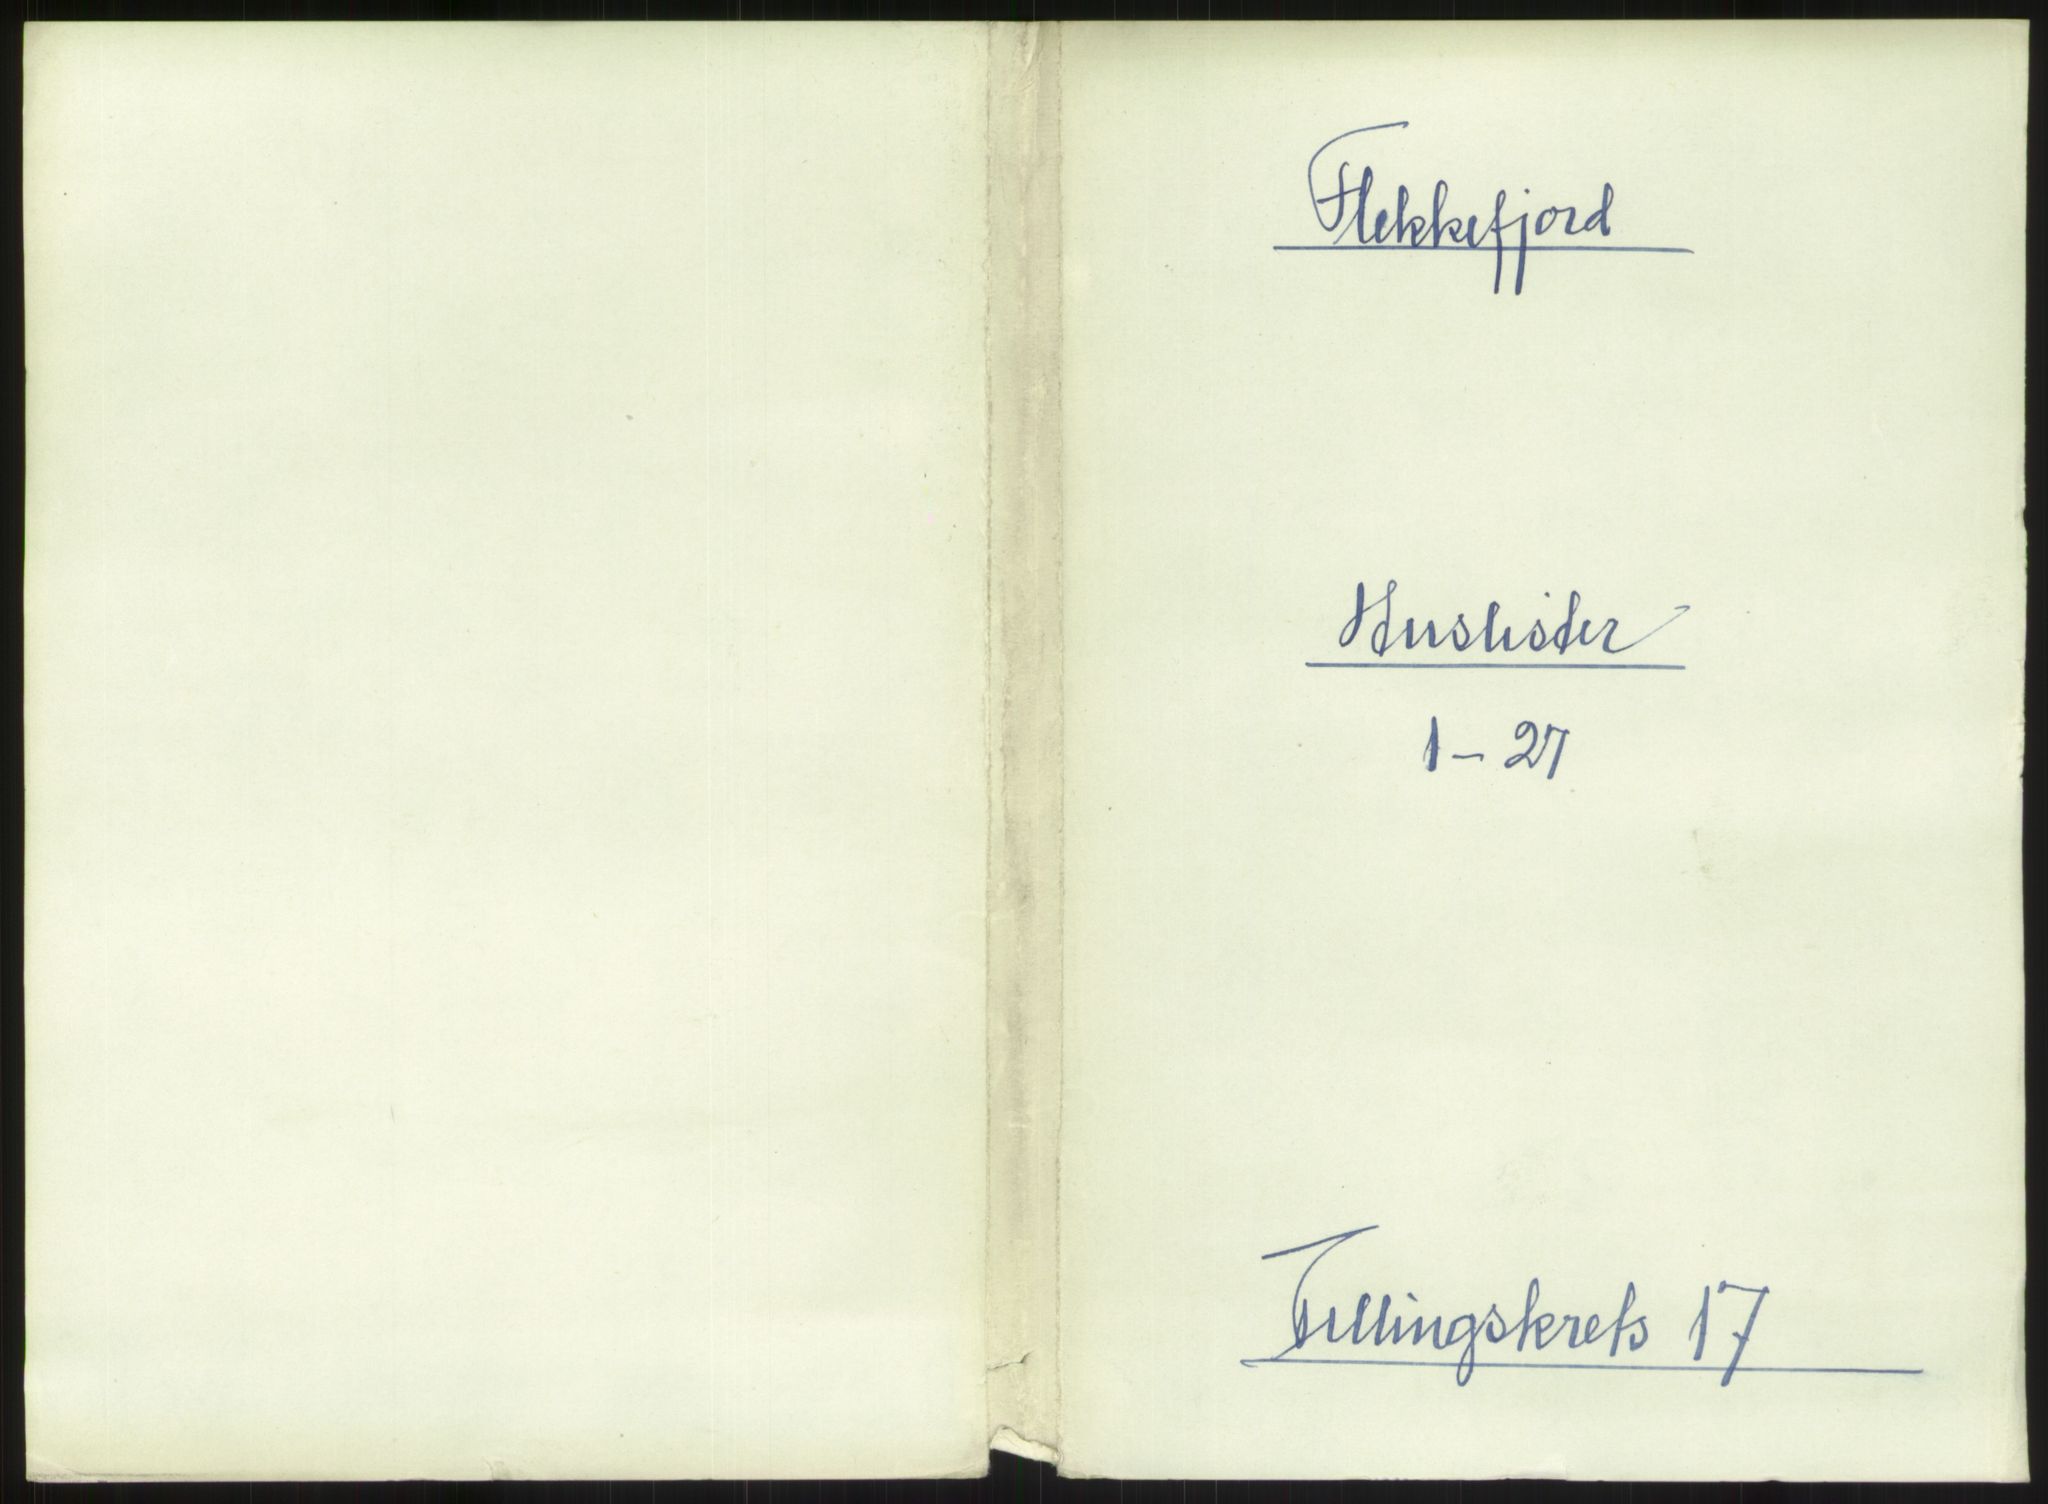 Flekkefjord
Huslister
1 - 27
Tellingskrets 17